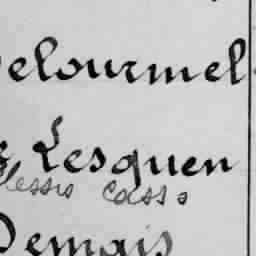 elourmel
Lesquen
lessis Casso
Demais